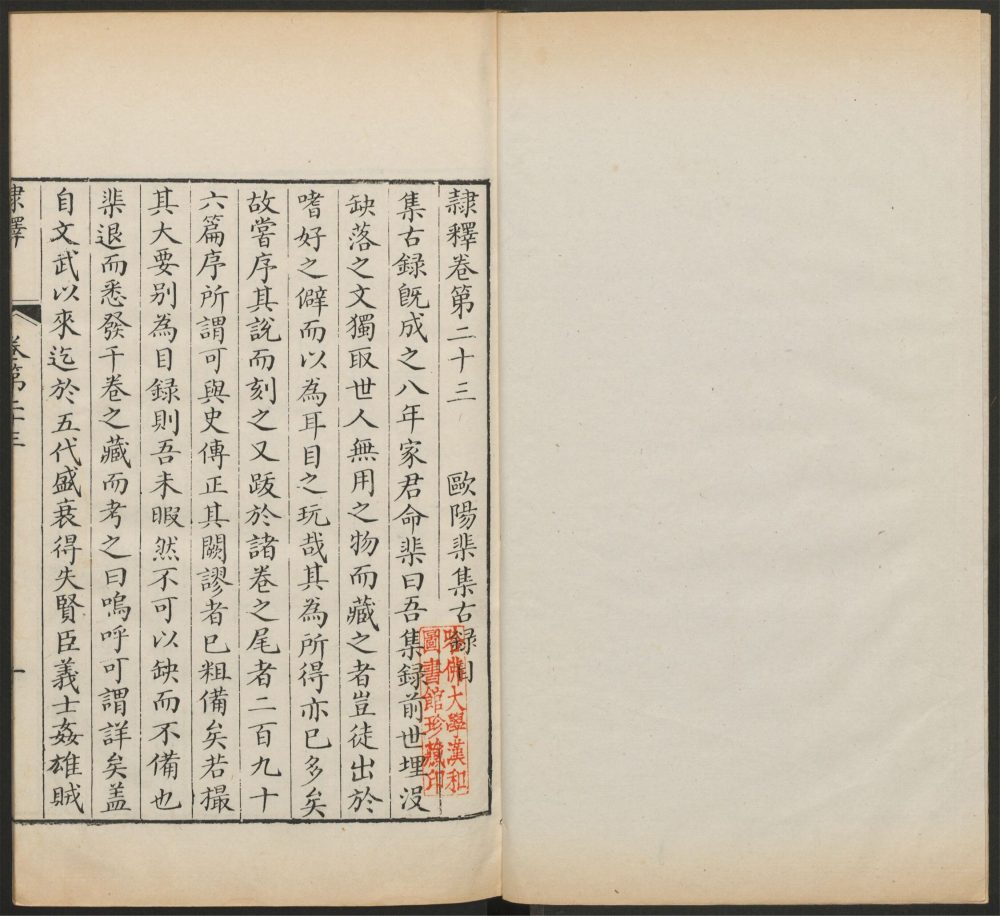 隷釋卷第二十三　歐陽棐集古録目
集古録旣成之八年家君命棐曰吾集録前世埋没
缺落之文獨取世人無用之物而藏之者豈徒出於
嗜好之僻而以為耳目之玩哉其為所得亦已多矣
故嘗序其說而刻之又跋於諸卷之尾者二百九十
六篇序所謂可與史傳正其闕謬者已粗備矣若撮
其大要别為目録則吾未暇然不可以缺而不備也
棐退而悉發千卷之藏而考之曰嗚呼可謂詳矣盖
自文武以來迄於五代盛衰得失賢臣義士姦雄賊
隷釋　卷第二十三　一
哈佛大學漢和
圖書館珍藏印